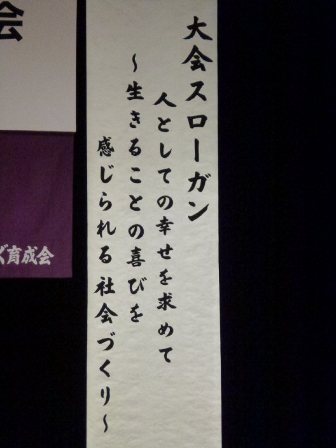 大会スローガン
人としての幸せを求めて
～生きることの喜びを
感じられる社会づくり～
会
育成会